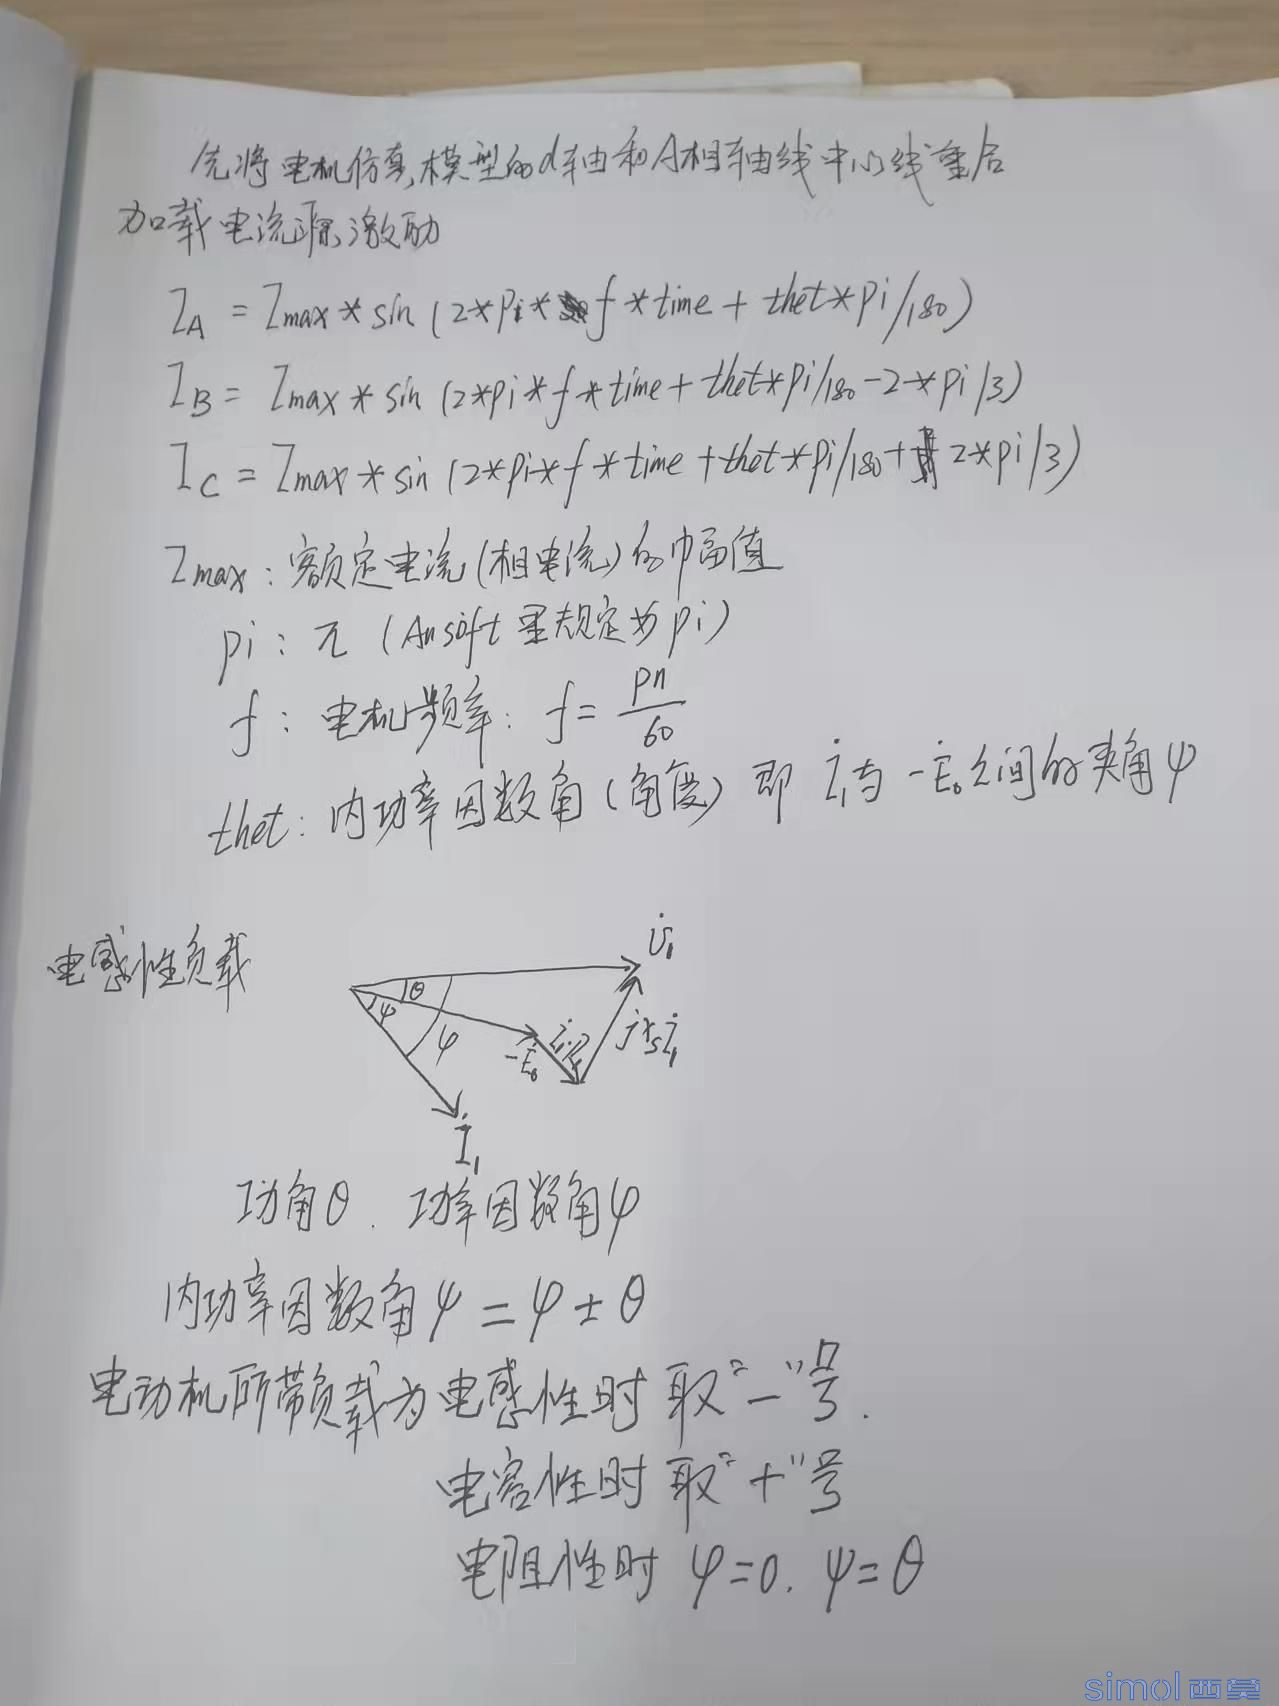 先将电机仿真模型的d轴和A相轴线中心线重合
加载电流源激励
I_A = Imax*sin(2*pi*f*time+thet*pi/180)
I_B = Imax*sin(2*pi*f*time+thet*pi/180-2*pi/3)
I_C = Imax*sin(2*pi*f*time+thet*pi/180+2*pi/3)
Imax:额定电流(相电流)的幅值
pi:π(Ansoft里规定为pi)
f:电机频率:f=pn/60
thet:内功率因数角(角度)即 İ₁与-Ė₀之间的夹角ψ
电感性负载
U̇₁
θ
ψ
φ
-Ė₀
jxsİ₁
İ₁
功角θ.功率因数角φ
内功率因数角ψ=φ±θ
电动机所带负载为电感性时取"-"号.
电容性时取"+"号
电阻性时 φ=0. ψ=θ
simol西莫